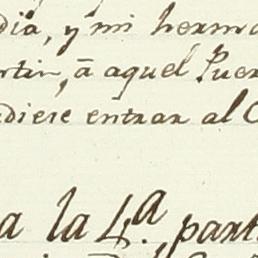 dia, y mi herma
rtin, á aquel Puer
udiese entrar al C
a la 4.ª part